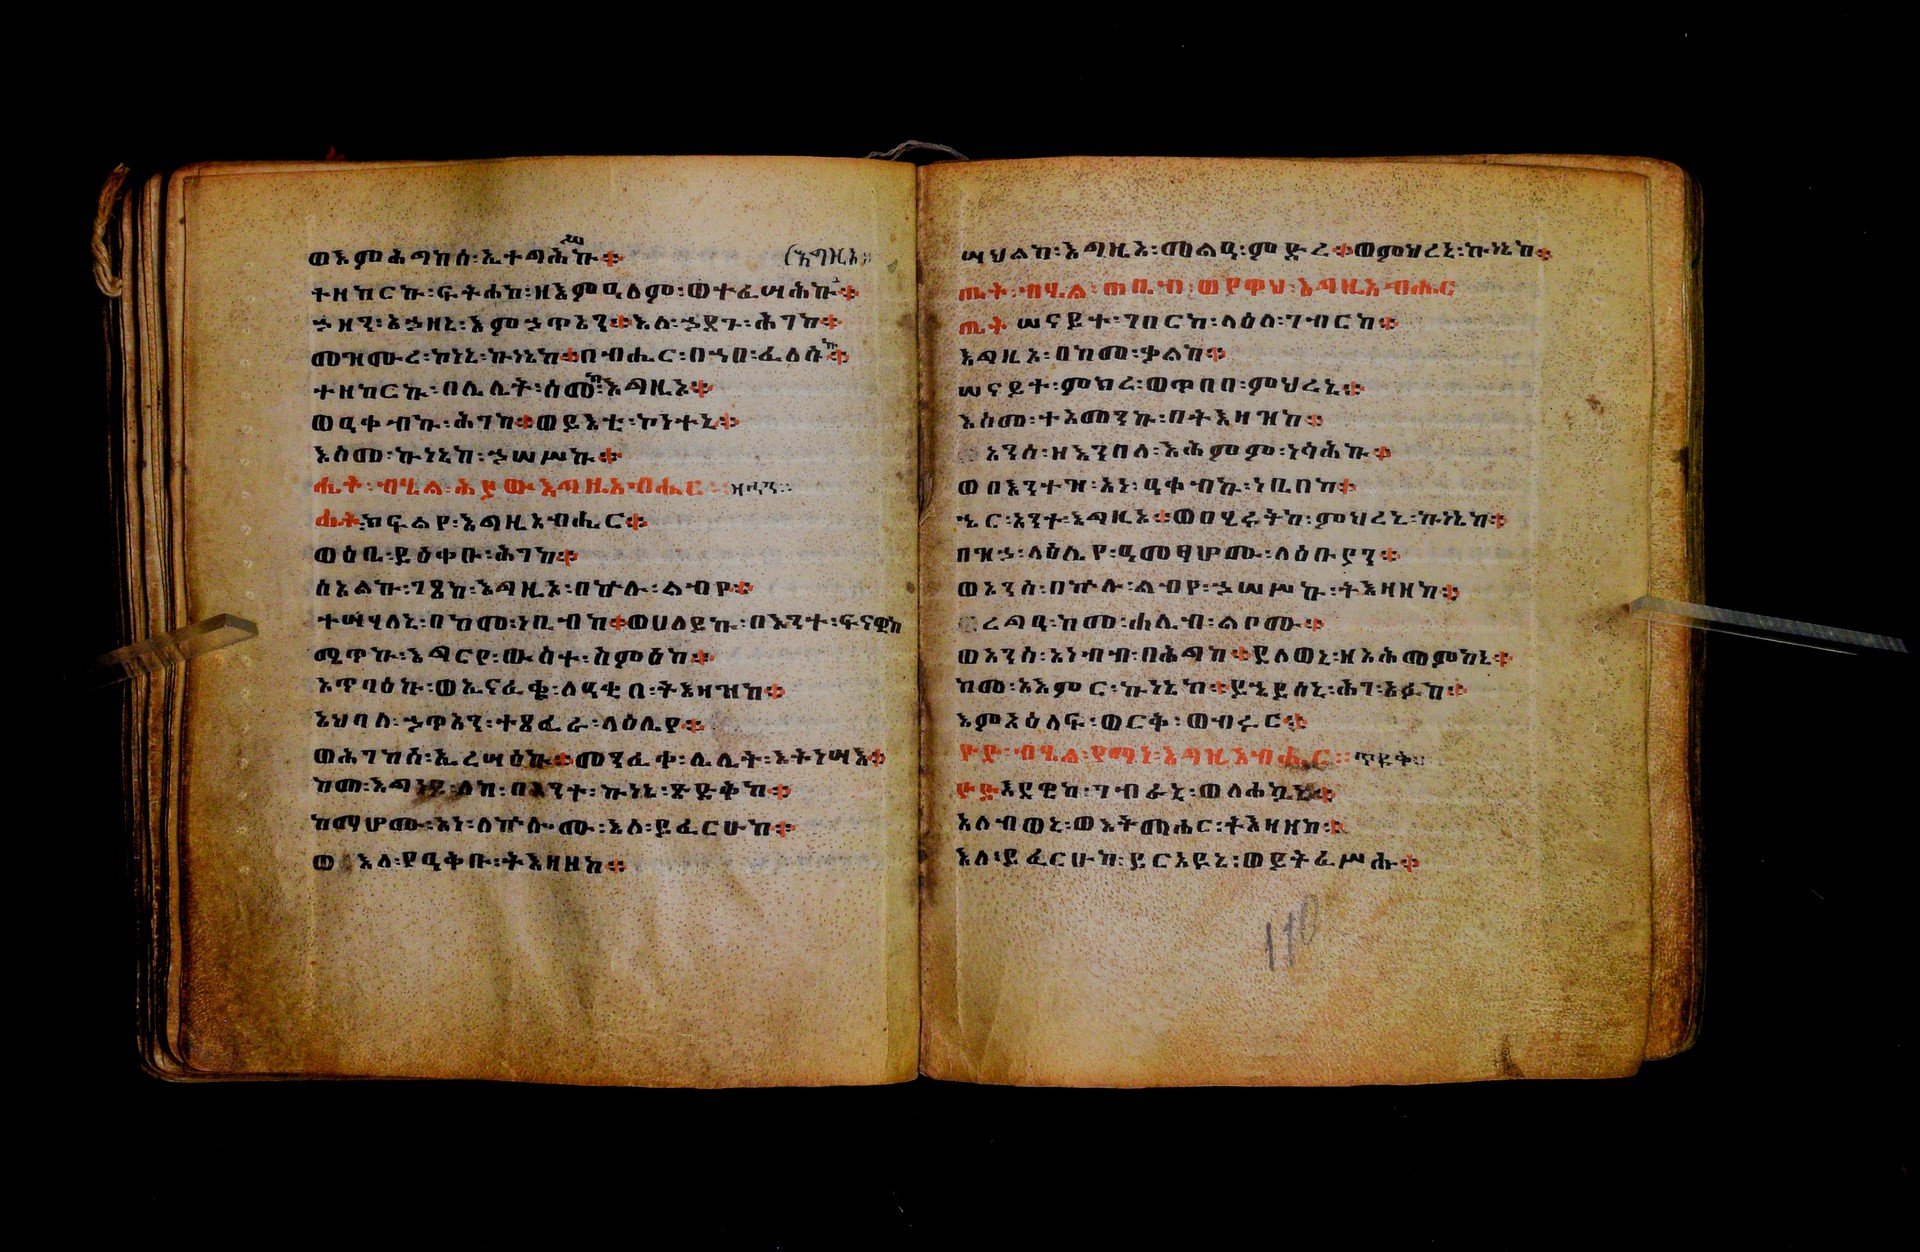 ወእምሕግከሰ፡ኢተግሕሥኩ፨ (እግዚአ፡
ተዘከርኩ፡ፍትሐከ፡ዘእምዓለም፡ወተፈሣሕኩ፨
ኃዘን፡አኃዘኒ፡እምኃጥአን፨እለ፡ኃደጉ፡ሕገከ፨
መዝሙረ፡ኮነኒ፡ኵነኔከ፨በብሔር፡በኀበ፡ፈለስኩ፨
ተዘከርኩ፡በሌሊት፡ስመከ፡እግዚኦ፨
ወዓቀብኩ፡ሕገከ፨ወይእቲ፡ኮነተኒ፨
እስመ፡ኵነኔከ፡ኃሠሥኩ፨
ሔት፡ብሂል፡ሕያው፡እግዚአብሔር፡
ሔት፡ክፍልየ፡እግዚአብሔር፨
ወዕቤ፡ይዕቀቡ፡ሕገከ፨
ሰአልኩ፡ገጸከ፡እግዚኦ፡በኵሉ፡ልብየ፨
ተሣሃለኒ፡በከመ፡ነቢብከ፨ወሀለይኩ፡በእንተ፡ፍናዊከ
ሜጥኩ፡እግርየ፡ውስተ፡ስምዕከ፨
አጥባዕኩ፡ወኢናፈቁ፡ለዓቂበ፡ትእዛዝከ፨
አህባለ፡ኃጥአን፡ተጸፈራ፡ላዕሌየ፨
ወሕገከሰ፡ኢረሣዕኩ፨መንፈቀ፡ሌሊት፡እትነሣእ፨
ከመ፡እግነይ፡ለከ፡በእንተ፡ኵነኔ፡ጽድቅከ፨
ከማሆሙ፡አነ፡ለኵሎሙ፡እለ፡ይፈርሁከ፨
ወ እለ፡የዓቅቡ፡ትእዛዘከ፨
ሣህልከ፡እግዚኦ፡መልዓ፡ምድረ፨ወምህረኒ፡ኵነኔከ፨
ጤት፡ብሂል፡ጠቢብ፡ወየዋህ፡እግዚአብሔር
ጤት ሠናይተ፡ገበርከ፡ላዕለ፡ገብርከ፨
እግዚኦ፡በከመ፡ቃልከ፨
ሠናይተ፡ምክረ፡ወጥበበ፡ምህረኒ፨
እስመ፡ተአመንኩ፡በትእዛዝከ፨
አንሰ፡ዘእንበለ፡እሕምም፡ነሳሕኩ፨
ወበእንተዝ፡አነ፡ዓቀብኩ፡ነቢበከ፨
ኄር፡አንተ፡እግዚኦ፨ወበሂሩትከ፡ምህረኒ፡ኵነኔከ፨
በዝኃ፡ላዕሌየ፡ዓመፃሆሙ፡ለዕቡያን፨
ወአንሰ፡በኵሉ፡ልብየ፡ኃሠሥኩ፡ትእዛዘከ፨
ረግዓ፡ከመ፡ሐሊብ፡ልቦሙ፨
ወአንሰ፡አነብብ፡በሕግከ፨ደለወኒ፡ዘአሕመምከኒ፨
ከመ፡አእምር፡ኵነኔከ፨ይኄይሰኒ፡ሕገ፡አፉከ፨
እምአዕላፍ፡ወርቅ፡ወብሩር፨
ዮድ፡ብሂል፡የማነ፡እግዚአብሔር፡፡ጥዩቅ፡
ዮድ፡እደዊከ፡ገብራኒ፡ወለሐኳኒ፨
አለብወኒ፡ወእትመሐር፡ትእዛዘከ፨
እለ፡ይፈርሁከ፡ይርአዩኒ፡ወይትፈሥሑ፨
110